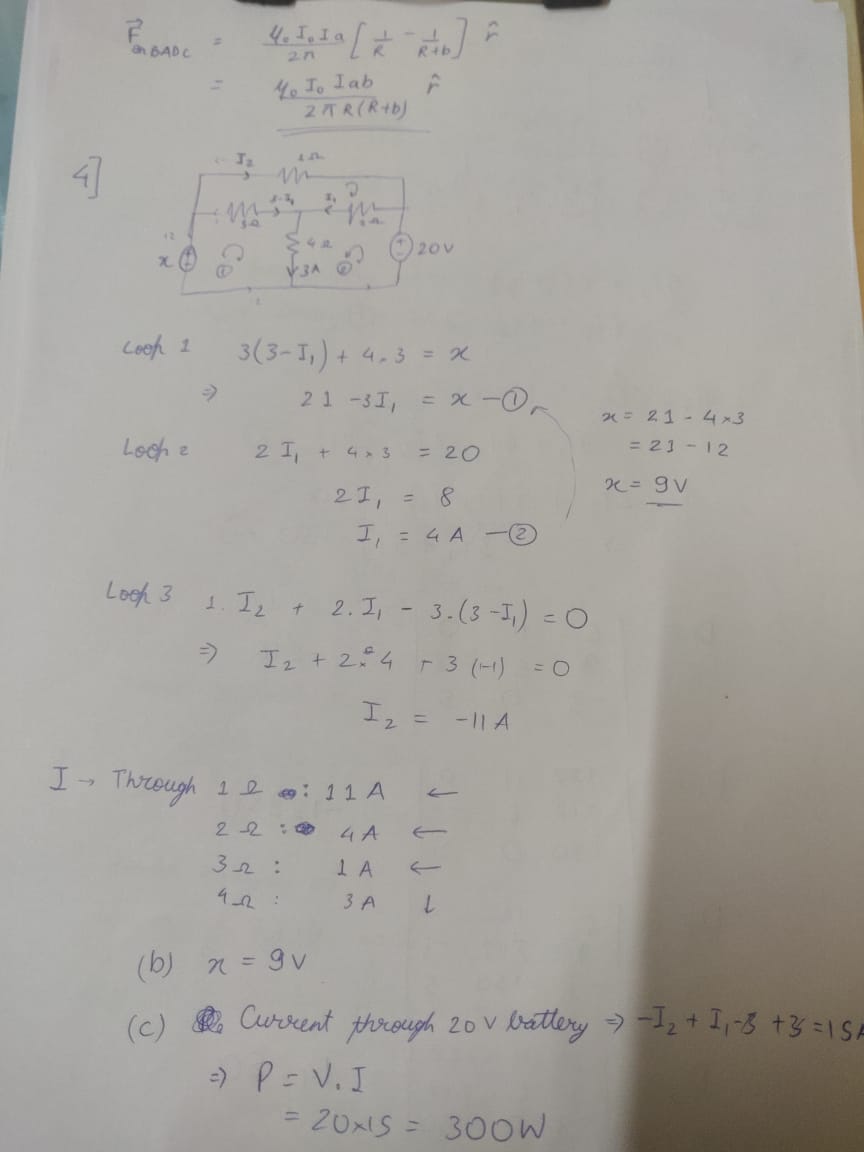 F⃗ on BADC = μ₀I₀Ia/2π [1/R - 1/R+b] r̂
= μ₀I₀Iab/2πR(R+b) r̂
4]
I₂ 1Ω
3-I₁ I₁
3Ω 2Ω
x ① 4Ω ② 20V
3A
Loop 1 3(3-I₁) + 4.3 = x
⇒ 21 - 3I₁ = x - ①
x = 21 - 4×3
Loop 2 2I₁ + 4×3 = 20
= 21 - 12
2I₁ = 8
x = 9V
I₁ = 4A - ②
Loop 3 1.I₂ + 2.I₁ - 3.(3-I₁) = 0
⇒ I₂ + 2×4 - 3(-1) = 0
I₂ = -11A
I → Through 1Ω : 11A ←
2Ω : 4A ←
3Ω : 1A ←
4Ω : 3A ↓
(b) x = 9V
(c) Current through 20V battery ⇒ -I₂ + I₁ -3 +3 = 15A
⇒ P = V.I
= 20×15 = 300W